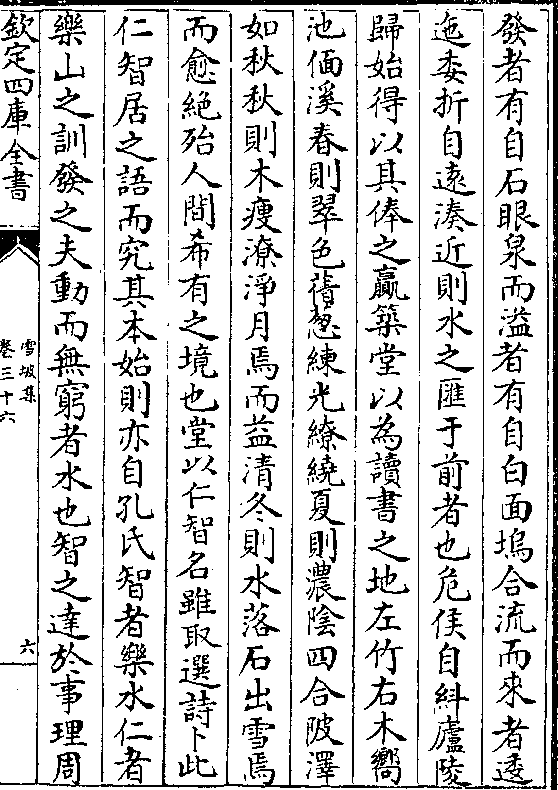 發者有自石眼泉而溢者有自白面塢合流而來者逶
迤委折自遠湊近則水之匯于前者也危侯自糾廬陵
歸始得以其俸之贏築堂以為讀書之地左竹右木嚮
池偭溪春則翠色蓊葱練光繚繞夏則濃陰四合陂澤
如秋秋則木瘦潦淨月焉而益清冬則水落石出雪焉
而愈絕殆人間希有之境也堂以仁智名雖取選詩卜此
仁智居之語而究其本始則亦自孔氏智者樂水仁者
樂山之訓發之夫動而無窮者水也智之達於事理周
欽定四庫全書
雪坡集
卷三十六
六